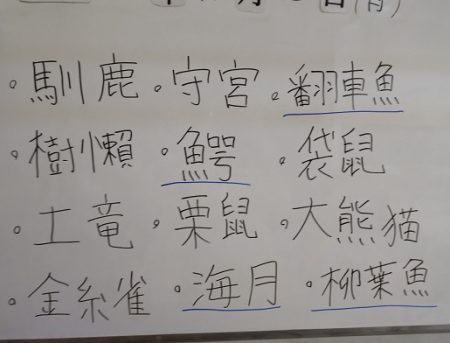 ・馴鹿 ・守宮 ・翻車魚
・樹懶 ・鰐 ・袋鼠
・土竜 ・栗鼠 ・大熊猫
・金糸雀 ・海月 ・柳葉魚